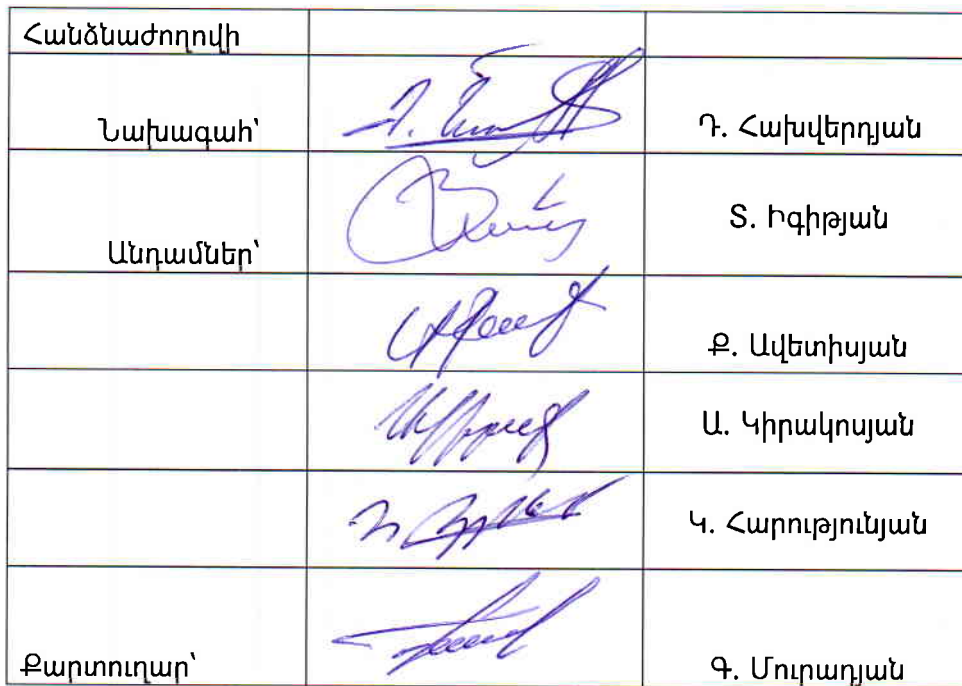 Հանձնաժողովի
Նախագահ՝ Դ. Հախվերդյան
Տ. Իգիթյան
Անդամներ՝
Ք. Ավետիսյան
Ա. Կիրակոսյան
Կ. Հարությունյան
Քարտուղար՝ Գ. Մուրադյան